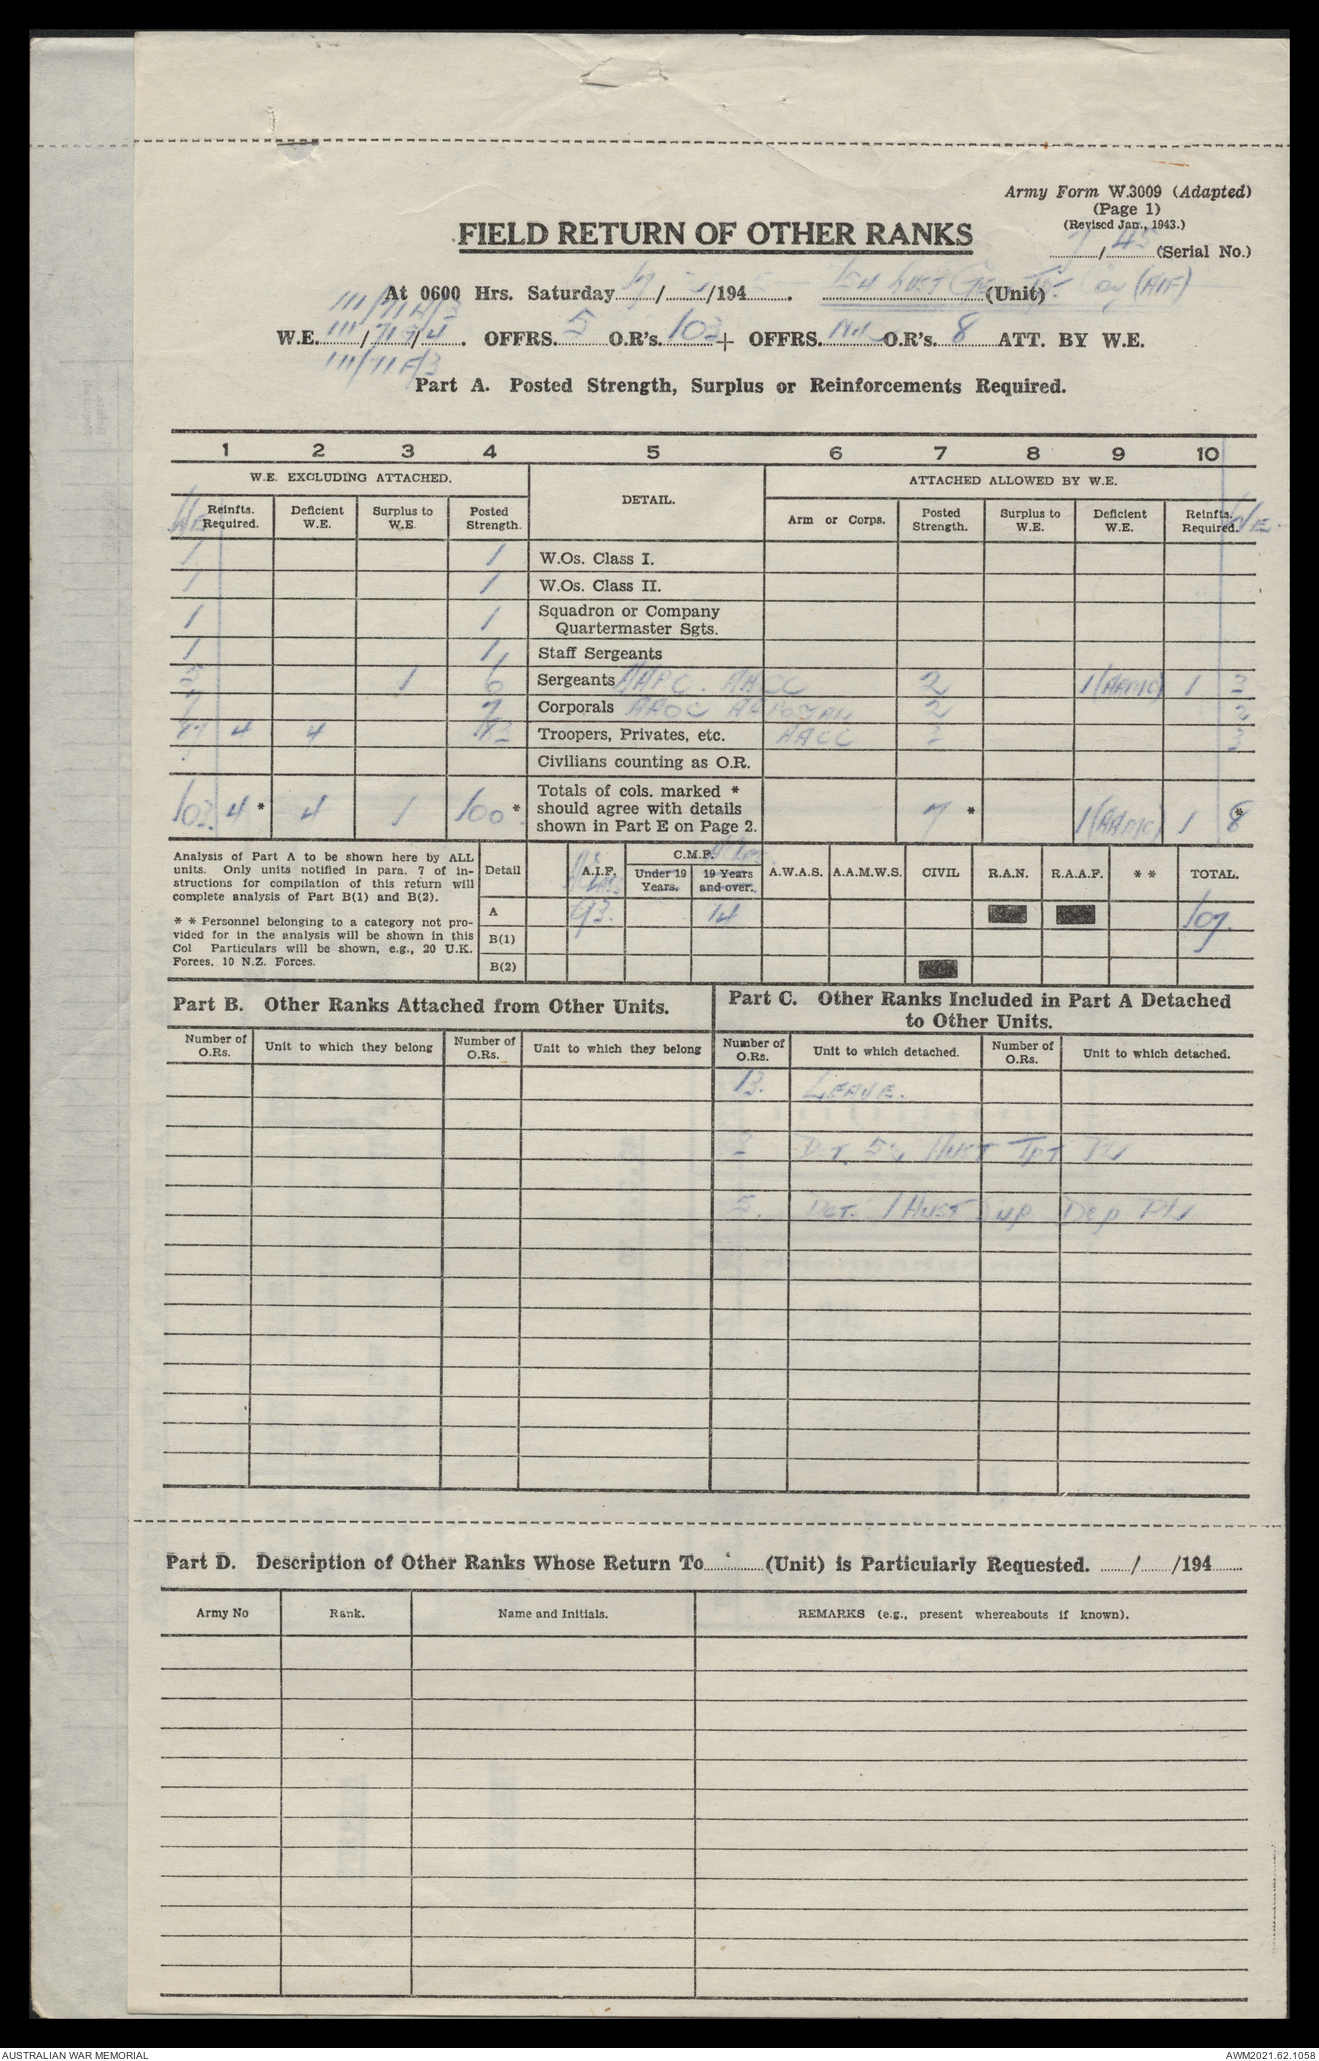 Army Form W.3009 (Adapted)
(Page 1)
(Revised Jan., 1943.)
7/45 (Serial No.)
FIELD RETURN OF OTHER RANKS
At 0600 Hrs. Saturday / /194 . (Unit)
(AIF)
111/71A/3
W.E. 111/71G/4. OFFRS. 5 O.R's. 103 + OFFRS. Nil O.R's. 8 ATT. BY W.E.
111/71F/3
Part A. Posted Strength, Surplus or Reinforcements Required.
1 2 3 4 5 6 7 8 9 10
W.E. EXCLUDING ATTACHED. DETAIL. ATTACHED ALLOWED BY W.E.
WE Reinfts. Required. Deficient W.E. Surplus to W.E. Posted Strength. Arm or Corps. Posted Strength. Surplus to W.E. Deficient W.E. Reinfts. Required. WE.
1 1 W.Os. Class I.
1 1 W.Os. Class II.
1 1 Squadron or Company
Quartermaster Sgts.
1 1 Staff Sergeants
5 1 6 Sergeants AAPC. AACC 2 1(AAMC) 1 3
7 7 Corporals AAOC 2 2
87 4 4 83 Troopers, Privates, etc. AACC 3 3
Civilians counting as O.R.
103. 4 * 4 1 100 * Totals of cols. marked *
should agree with details
shown in Part E on Page 2. 7 * 1(AAMC) 1 8 *
Analysis of Part A to be shown here by ALL
units. Only units notified in para. 7 of in-
structions for compilation of this return will
complete analysis of Part B(1) and B(2).
* * Personnel belonging to a category not pro-
vided for in the analysis will be shown in this
Col Particulars will be shown, e.g., 20 U.K.
Forces, 10 N.Z. Forces.
Detail A.I.F. C.M.F. Under 19 Years. 19 Years and over. A.W.A.S. A.A.M.W.S. CIVIL R.A.N. R.A.A.F. * * TOTAL.
A 93. 14 107.
B(1)
B(2)
Part B. Other Ranks Attached from Other Units.
Part C. Other Ranks Included in Part A Detached
to Other Units.
Number of O.Rs. Unit to which they belong Number of O.Rs. Unit to which they belong Number of O.Rs. Unit to which detached. Number of O.Rs. Unit to which detached.
13. LEAVE.
DET. AUST TPT PL
5. DET. 1 AUST SUP DEP PL
Part D. Description of Other Ranks Whose Return To (Unit) is Particularly Requested. / /194
Army No Rank. Name and Initials. REMARKS (e.g., present whereabouts if known).
AUSTRALIAN WAR MEMORIAL AWM2021.62.1058